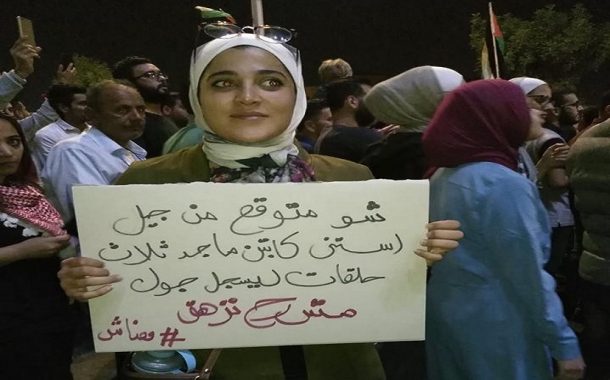 شو متوقع من جيل
استنى كابتن ماجد ثلاث
حلقات ليسجل جول
مش رح نزهق
#معناش